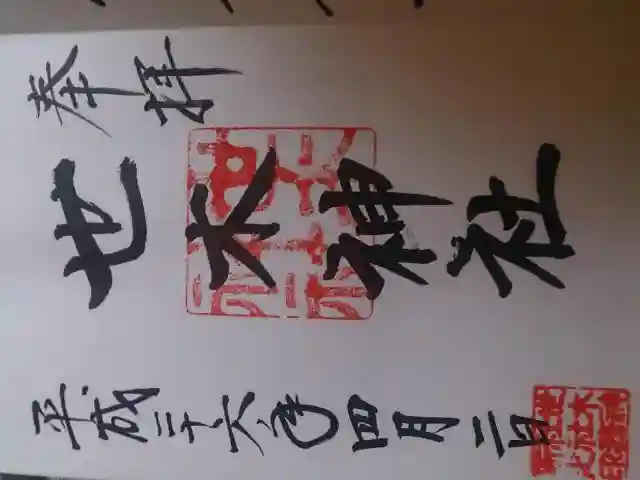 奉拝
世木神社
平成二十六年四月二日